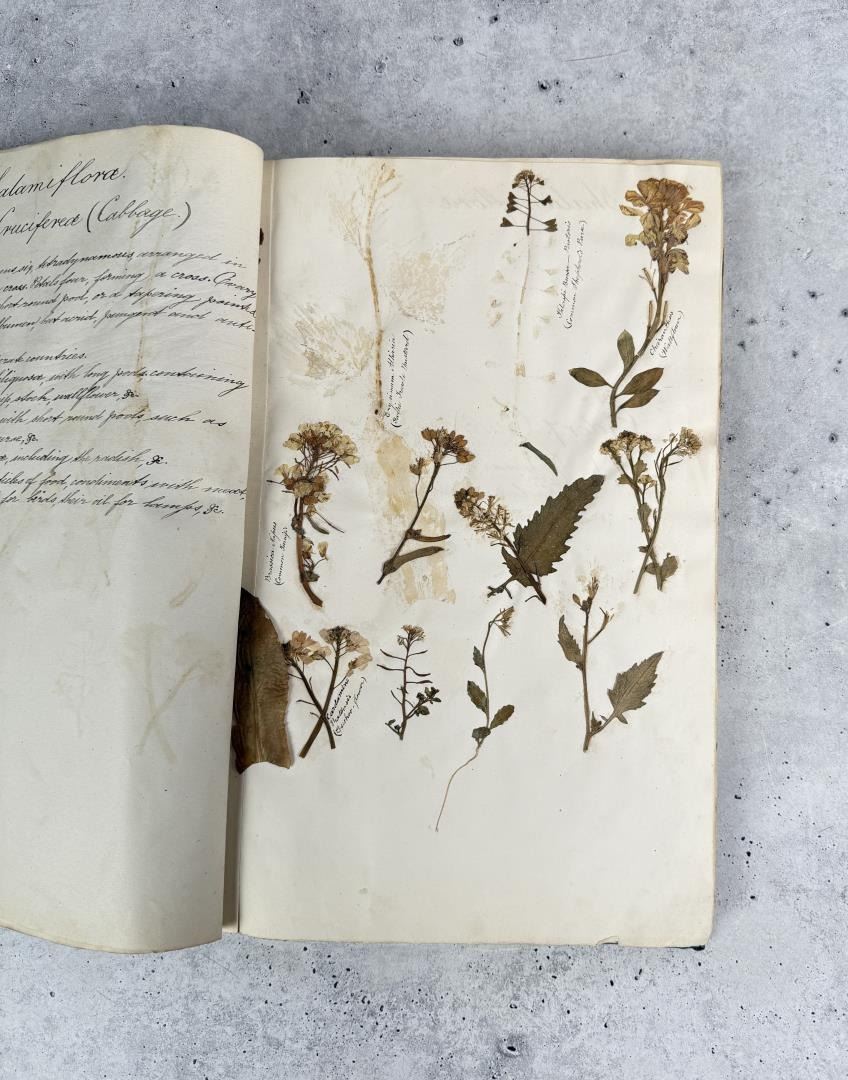 alamifloræ.
rucifereæ (Cabbage.)
six, tetradynamous, arranged in
cross. Petals four, forming a cross. Ovary
short round pod, or a tapering pointed
albumen, but acrid, pungent and anti-
rate countries.
iliquosa, with long pods containing
stock, wallflower, &c
with short round pods, such as
urse, &c.
including the radish, &c.
ticles of food, condiments with meat,
for birds, their oil for lamps, &c.
Erysimum Alliaria
(Garlic Treacle Mustard)
Bursa-Pastoris
(Common Shepherd's Purse)
Cheiranthus
(Wallflower)
Brassica Napus
(Common
Cardamine
Pratensis
(Cuckoo-flower)